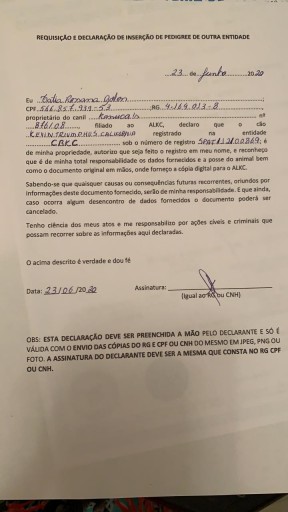 REQUISIÇÃO E DECLARAÇÃO DE INSERÇÃO DE PEDIGREE DE OUTRA ENTIDADE
23 de Junho 2020
Eu
CPF RG
proprietário do canil nº
876/08, filiado ao ALKC, declaro que o cão
registrado na entidade
CBKC sob o número de registro é
de minha propriedade, autorizo que seja feito o registro em meu nome, e reconheço
que é de minha total responsabilidade os dados fornecidos e a posse do animal bem
como o documento original em mãos, onde forneço a cópia digital para o ALKC.
Sabendo-se que quaisquer causas ou consequências futuras recorrentes, oriundos por
informações deste documento fornecido, serão de minha responsabilidade. E que ainda,
caso ocorra algum desencontro de dados fornecidos o documento poderá ser
cancelado.
Tenho ciência dos meus atos e me responsabilizo por ações cíveis e criminais que
possam recorrer sobre as informações aqui declaradas.
O acima descrito é verdade e dou fé
Data: 23/06/2020 Assinatura:
(Igual ao RG ou CNH)
OBS: ESTA DECLARAÇÃO DEVE SER PREENCHIDA A MÃO PELO DECLARANTE E SÓ É
VÁLIDA COM O ENVIO DAS CÓPIAS DO RG E CPF OU CNH DO MESMO EM JPEG, PNG OU
FOTO. A ASSINATURA DO DECLARANTE DEVE SER A MESMA QUE CONSTA NO RG CPF
OU CNH.